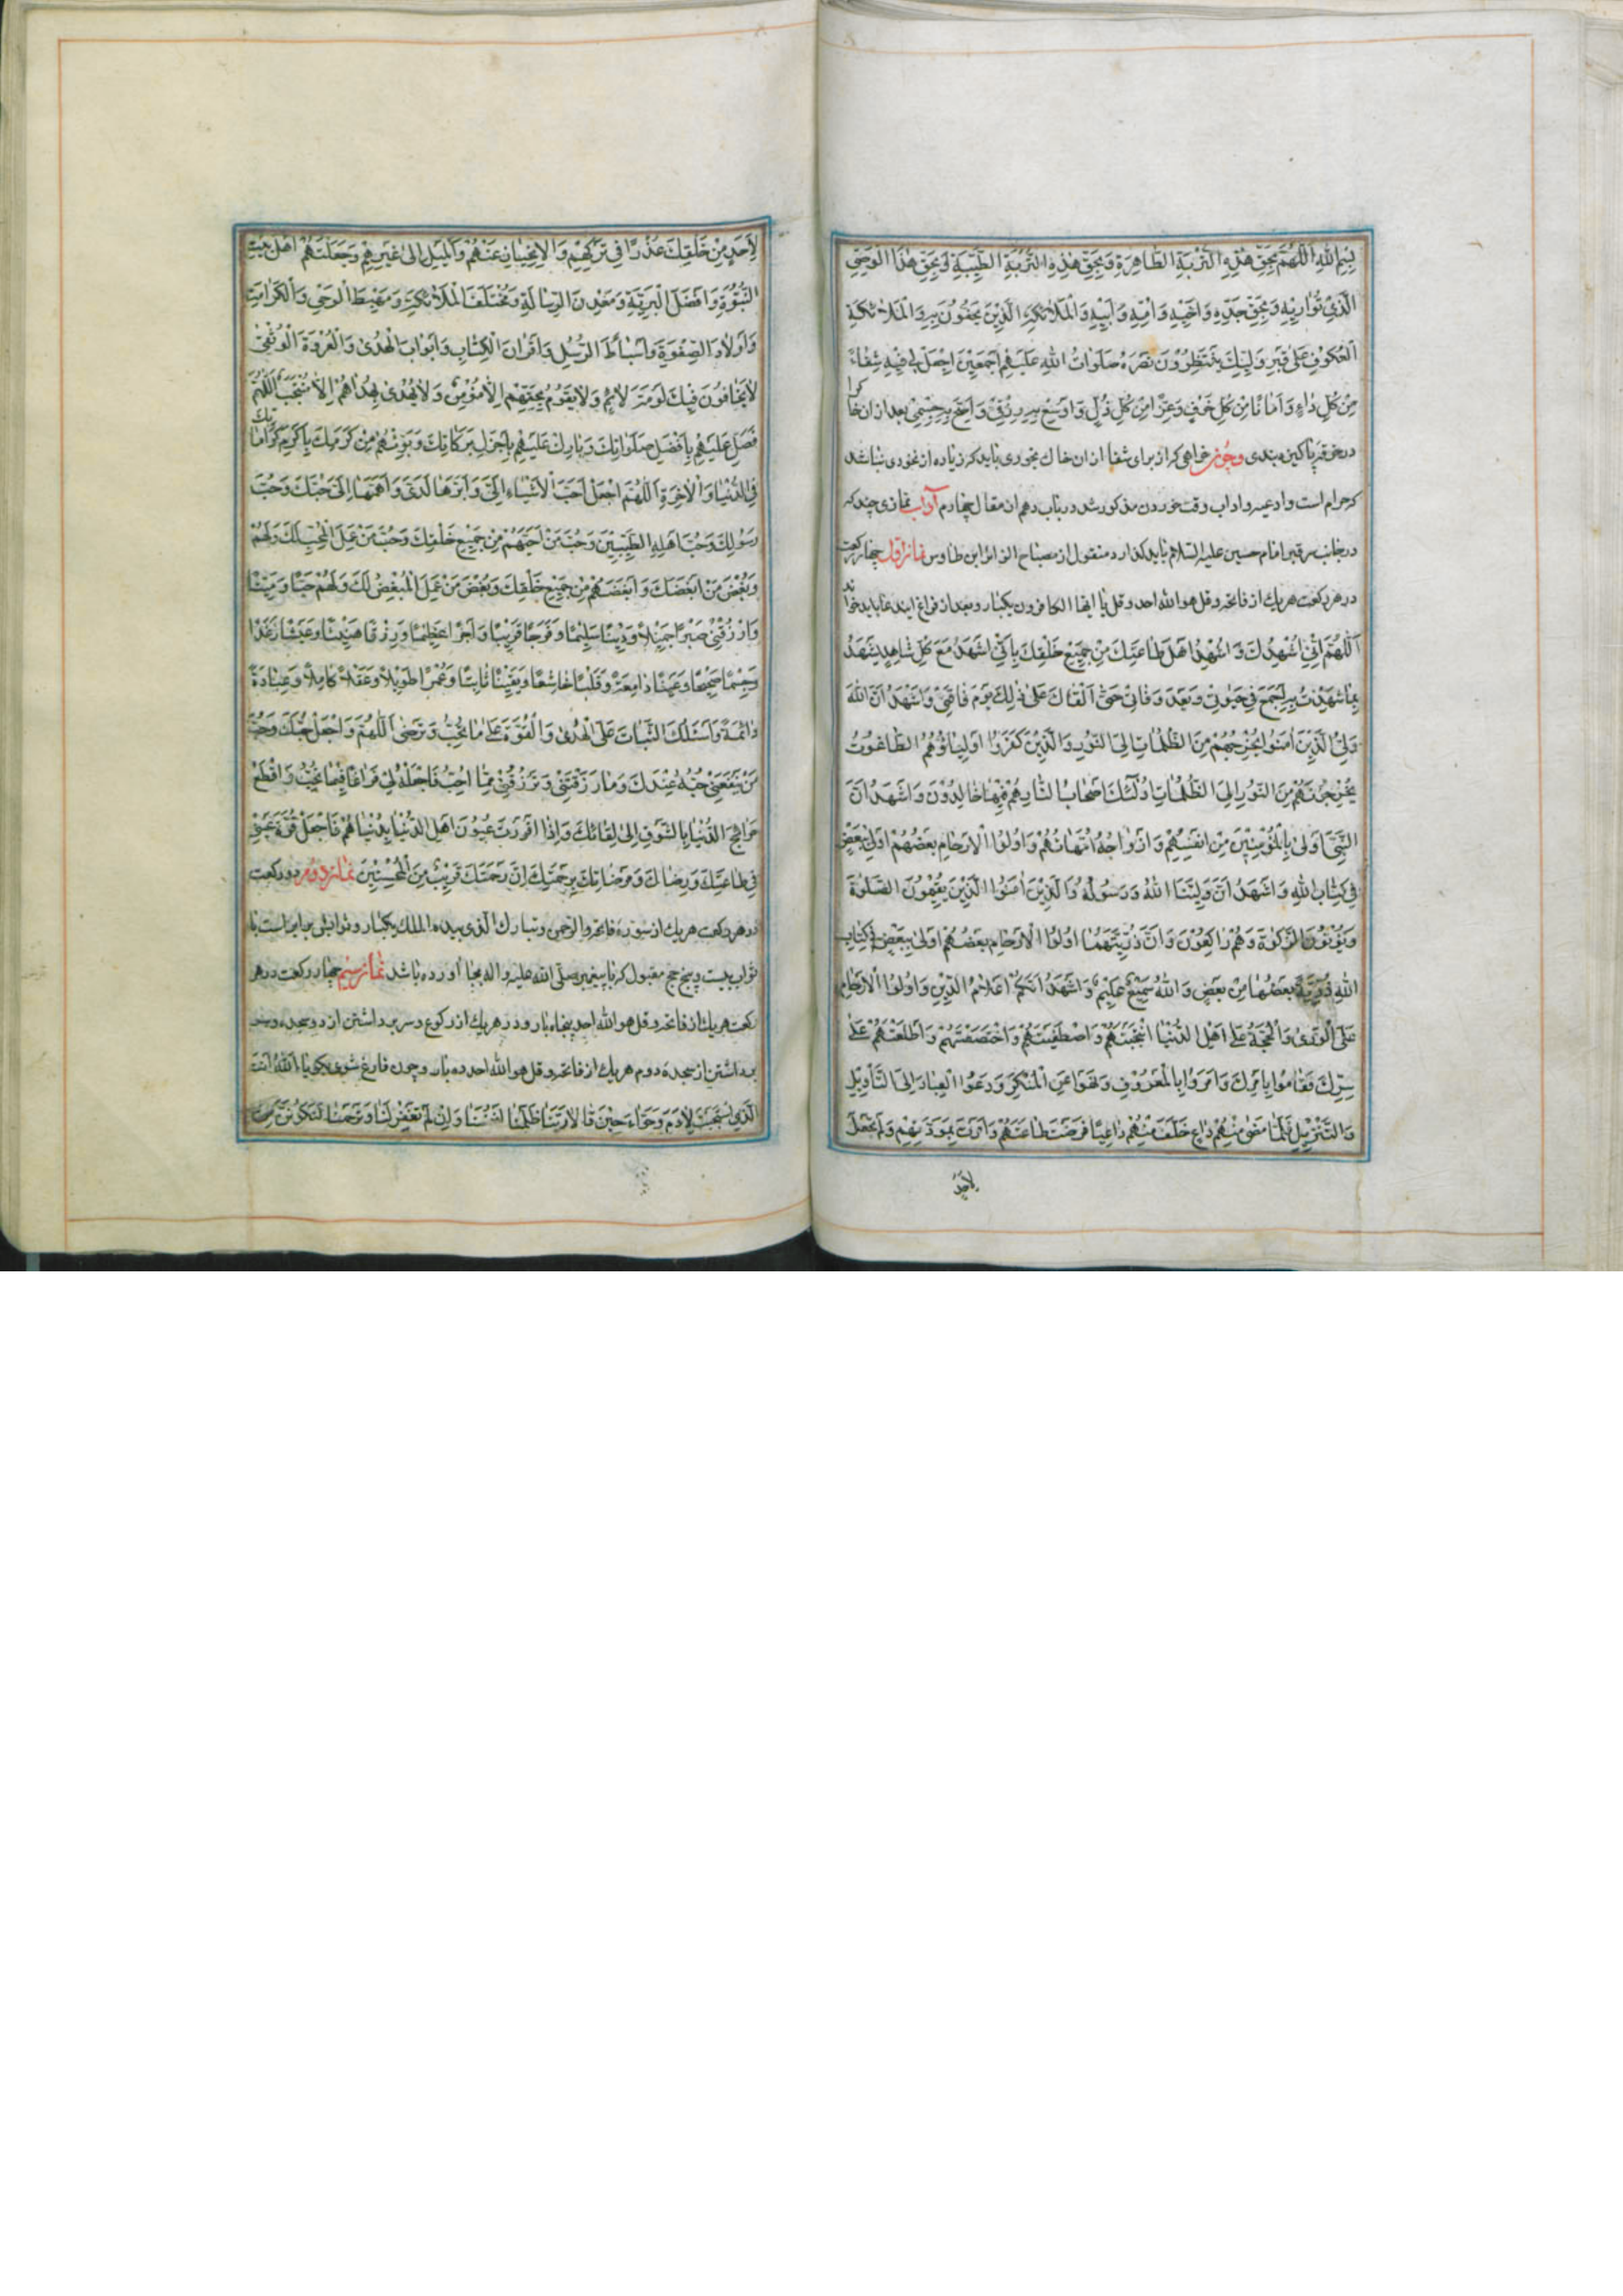 بِسْمِ اللهِ اَللّٰهُمَّ بِحَقِّ هٰذِهِ التُّرْبَةِ الطَّاهِرَةِ وَبِحَقِّ هٰذِهِ التُّرْبَةِ الطَّيِّبَةِ وَبِحَقِّ هٰذَا الْوَصِيِّ
الَّذِيْ تُوَارِيْهِ وَبِحَقِّ جَدِّهِ وَاَخِيْهِ وَاُمِّهِ وَاَبِيْهِ وَالْمَلَائِكَةِ الَّذِيْنَ يَحُفُّوْنَ بِهِ وَالْمَلَائِكَةِ
الْعُكُوْفِ عَلٰى قَبْرِ وَلِيِّكَ يَنْتَظِرُوْنَ نَصْرَهُ صَلَوَاتُ اللهِ عَلَيْهِمْ اَجْمَعِيْنَ اِجْعَلْ لِيْ فِيْهِ شِفَاءً
مِنْ كُلِّ دَاءٍ وَاَمَانًا مِنْ كُلِّ خَوْفٍ وَعِزًّا مِنْ كُلِّ ذُلٍّ وَاَوْسِعْ بِهِ رِزْقِيْ وَاَصِحَّ بِهِ جِسْمِيْ بعد از ان خاك را
در خرقه پاکین ببندی وچون خواهی که از برای شفا از ان خاك بخوری باید که زیاده از نخودی نباشد
که حرام است وادعیه واداب وقت خوردن مذکور شد در باب دهم از مقاله چهارم آداب نمازی چند که
در جانب سر قبر امام حسین علیه السلام باید گذارد منقول از مصباح الزائر ابن طاوس نماز اوّل چهار رکعت
در هر رکعت هر یك از فاتحه وقل هو الله احد وقل یا ایها الکافرون یکبار وبعد از فراغ ایندعا باید خواند
اَللّٰهُمَّ اِنِّيْ اُشْهِدُكَ وَاُشْهِدُ اَهْلَ طَاعَتِكَ مِنْ جَمِيْعِ خَلْقِكَ بِاَنِّيْ اَشْهَدُ مَعَ كُلِّ شَاهِدٍ يَشْهَدُ
بِمَا شَهِدْتُ بِهِ اَجْمَعَ فِيْ حَيٰوتِيْ وَبَعْدَ وَفَاتِيْ حَتّٰى اَلْقَاكَ عَلٰى ذٰلِكَ يَوْمَ فَاقَتِيْ وَاَشْهَدُ اَنَّ اللهَ
وَلِيُّ الَّذِيْنَ اٰمَنُوْا يُخْرِجُهُمْ مِنَ الظُّلُمَاتِ اِلَى النُّوْرِ وَالَّذِيْنَ كَفَرُوْا اَوْلِيَاؤُهُمُ الطَّاغُوْتُ
يُخْرِجُوْنَهُمْ مِنَ النُّوْرِ اِلَى الظُّلُمَاتِ اُولٰئِكَ اَصْحَابُ النَّارِ هُمْ فِيْهَا خَالِدُوْنَ وَاَشْهَدُ اَنَّ
النَّبِيَّ اَوْلٰى بِالْمُؤْمِنِيْنَ مِنْ اَنْفُسِهِمْ وَاَزْوَاجُهُ اُمَّهَاتُهُمْ وَاُولُوا الْاَرْحَامِ بَعْضُهُمْ اَوْلٰى بِبَعْضٍ
فِيْ كِتَابِ اللهِ وَاَشْهَدُ اَنَّ وَلِيَّنَا اللهُ وَرَسُوْلُهُ وَالَّذِيْنَ اٰمَنُوا الَّذِيْنَ يُقِيْمُوْنَ الصَّلٰوةَ
وَيُؤْتُوْنَ الزَّكٰوةَ وَهُمْ رَاكِعُوْنَ وَاَنَّ ذُرِّيَّتَهُمَا اُولُوا الْاَرْحَامِ بَعْضُهُمْ اَوْلٰى بِبَعْضٍ فِيْ كِتَابِ
اللهِ ذُرِّيَّةً بَعْضُهَا مِنْ بَعْضٍ وَاللهُ سَمِيْعٌ عَلِيْمٌ وَاَشْهَدُ اَنَّهُمْ اَعْلَامُ الدِّيْنِ وَاُولُوا الْاَرْحَامِ
عَلَى الْوَرٰى وَالْحُجَّةُ عَلٰى اَهْلِ الدُّنْيَا انْتَجَبْتَهُمْ وَاصْطَفَيْتَهُمْ وَاخْتَصَصْتَهُمْ وَاَطْلَعْتَهُمْ عَلٰى
سِرِّكَ فَقَامُوْا بِاَمْرِكَ وَاَمَرُوْا بِالْمَعْرُوْفِ وَنَهَوْا عَنِ الْمُنْكَرِ وَدَعَوُا الْعِبَادَ اِلَى التَّأْوِيْلِ
وَالتَّنْزِيْلِ كُلَّمَا مَضٰى مِنْهُمْ دَاعٍ خَلَفَ مِنْهُمْ دَاعِيًا فَرَضْتَ طَاعَتَهُمْ وَاَمَرْتَ بِمَوَدَّتِهِمْ وَلَمْ تَجْعَلْ
لِاَحَدٍ
لِاَحَدٍ مِنْ خَلْقِكَ عُذْرًا فِيْ تَرْكِهِمْ وَالْاِنْحِيَازِ عَنْهُمْ وَالْمَيْلِ اِلٰى غَيْرِهِمْ وَجَعَلْتَهُمْ اَهْلَ بَيْتِ
النُّبُوَّةِ وَاَفْضَلَ الْبَرِيَّةِ وَمَعْدِنَ الرِّسَالَةِ وَمُخْتَلَفَ الْمَلَائِكَةِ وَمَهْبِطَ الْوَحْيِ وَالْكَرَامَةِ
وَاَوْلَادَ الصَّفْوَةِ وَاَسْبَاطَ الرُّسُلِ وَاَقْرَانَ الْكِتَابِ وَاَبْوَابَ الْهُدٰى وَالْعُرْوَةَ الْوُثْقٰى
لَا يَخَافُوْنَ فِيْكَ لَوْمَةَ لَائِمٍ وَلَا يَقُوْمُ بِحَقِّهِمْ اِلَّا مُؤْمِنٌ وَلَا يُهْدٰى بِهُدَاهُمْ اِلَّا مُنْتَجَبٌ اَللّٰهُمَّ
فَصَلِّ عَلَيْهِمْ بِاَفْضَلِ صَلَوَاتِكَ وَبَارِكْ عَلَيْهِمْ بِاَجْزَلِ بَرَكَاتِكَ وَبَوِّئْهُمْ مِنْ كَرَمِكَ بِاَكْرَمِ كَرَامَاتِكَ
فِي الدُّنْيَا وَالْاٰخِرَةِ اَللّٰهُمَّ اجْعَلْ اَحَبَّ الْاَشْيَاءِ اِلَيَّ وَاَبَرَّهَا لَدَيَّ وَاَهَمَّهَا اِلَيَّ حُبَّكَ وَحُبَّ
رَسُوْلِكَ وَحُبَّ اَهْلِهِ الطَّيِّبِيْنَ وَحُبَّ مَنْ اَحَبَّهُمْ مِنْ جَمِيْعِ خَلْقِكَ وَحُبَّ مَنْ عَمِلَ الْمُحِبُّ لَكَ وَلَهُمْ
وَبُغْضَ مَنْ اَبْغَضَكَ وَاَبْغَضَهُمْ مِنْ جَمِيْعِ خَلْقِكَ وَبُغْضَ مَنْ عَمِلَ الْمُبْغِضُ لَكَ وَلَهُمْ حَيًّا وَمَيِّتًا
وَارْزُقْنِيْ صَبْرًا جَمِيْلًا وَدِيْنًا سَلِيْمًا وَفَرَجًا قَرِيْبًا وَاَجْرًا عَظِيْمًا وَرِزْقًا هَنِيْئًا وَعَيْشًا رَغَدًا
وَجِسْمًا صَحِيْحًا وَعَيْنًا دَامِعَةً وَقَلْبًا خَاشِعًا وَيَقِيْنًا ثَابِتًا وَعُمْرًا طَوِيْلًا وَعَقْلًا كَامِلًا وَعِبَادَةً
دَائِمَةً وَاَسْئَلُكَ الثَّبَاتَ عَلَى الْهُدٰى وَالْقُوَّةَ عَلٰى مَا تُحِبُّ وَتَرْضٰى اَللّٰهُمَّ وَاجْعَلْ حُبَّكَ وَحُبَّ
مَنْ يَنْفَعُنِيْ حُبُّهُ عِنْدَكَ وَمَا رَزَقْتَنِيْ وَتَرْزُقُنِيْ مِمَّا اُحِبُّ فَاجْعَلْهُ لِيْ فَرَاغًا فِيْمَا تُحِبُّ وَاقْطَعْ
حَوَائِجَ الدُّنْيَا بِالشَّوْقِ اِلٰى لِقَائِكَ وَاِذَا اَقْرَرْتَ عُيُوْنَ اَهْلِ الدُّنْيَا بِدُنْيَاهُمْ فَاجْعَلْ قُرَّةَ عَيْنِيْ
فِيْ طَاعَتِكَ وَرِضَاكَ وَمَرْضَاتِكَ بِرَحْمَتِكَ اِنَّ رَحْمَتَكَ قَرِيْبٌ مِنَ الْمُحْسِنِيْنَ نماز دوّم دو رکعت
در هر رکعت هر یك از سوره فاتحه والرحمن وتبارك الذی بیده الملك یکبار وثوابش برابر است با
ثواب بیست وپنج حج مقبول که با پیغمبر صلی الله علیه واله بجا اورده باشد نماز سیم چهار رکعت در هر
رکعت هر یك از فاتحه وقل هو الله احد پنجاه بار ودر هر یك از رکوع وسر برداشتن از ‌دو سجده وسر
برداشتن از سجده دوم هر یك از فاتحه وقل هو الله احد ده بار وچون فارغ شوی بگو یا اَللّٰهُ اَنْتَ
الَّذِيْ اسْتَجَبْتَ لِاٰدَمَ وَحَوَّاءَ حِيْنَ قَالَا رَبَّنَا ظَلَمْنَا اَنْفُسَنَا وَاِنْ لَمْ تَغْفِرْ لَنَا وَتَرْحَمْنَا لَنَكُوْنَنَّ مِنَ